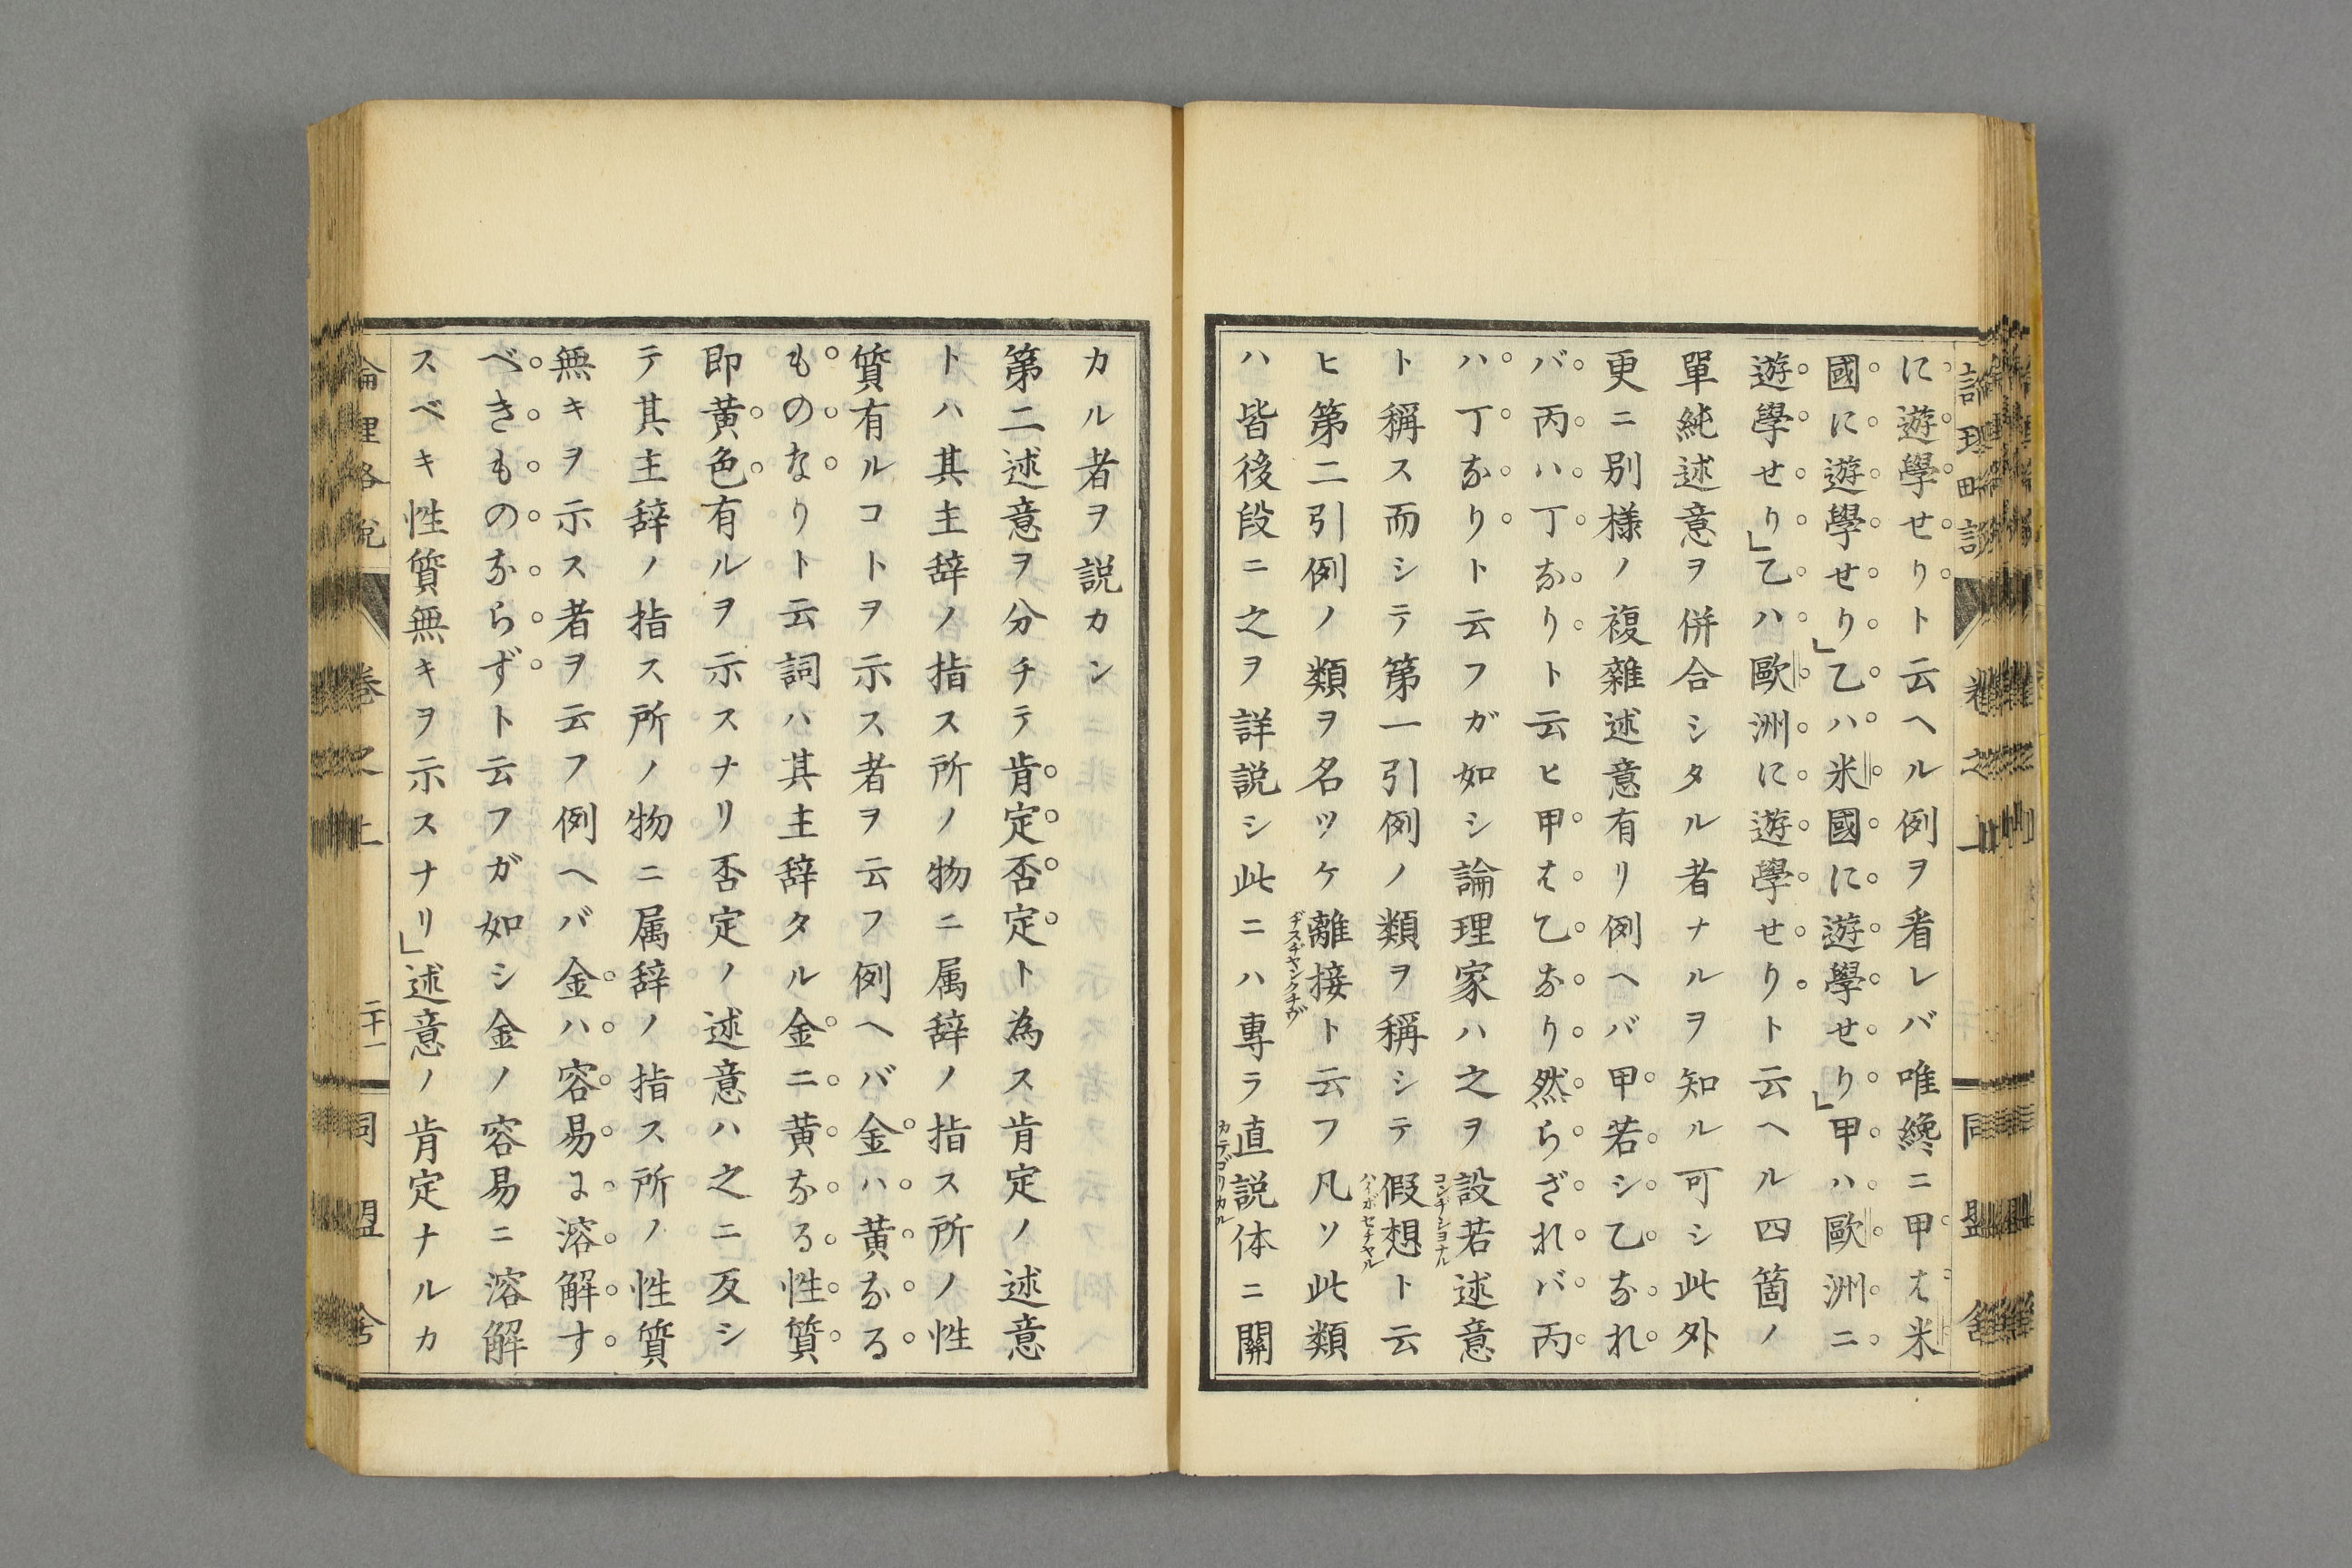 に遊學せりト云ヘル例ヲ看レバ唯纔ニ甲は米
國に遊學せり」乙ハ米國に遊學せり」甲ハ歐洲ニ
遊學せり」乙ハ歐洲に遊學せりト云ヘル四箇ノ
單純述意ヲ併合シタル者ナルヲ知ル可シ此外
更ニ別樣ノ複雜述意有リ例ヘバ甲若シ乙なれ
バ丙ハ丁なりト云ヒ甲は乙なり然らざれバ丙
ハ丁なりト云フガ如シ論理家ハ之ヲ設若述意
コンヂシヨナル
ト稱ス而シテ第一引例ノ類ヲ稱シテ假想ト云
ハイポセチヤル
ヒ第二引例ノ類ヲ名ツケ離接ト云フ凡ソ此類
ヂスヂヤンクチヴ
ハ皆後段ニ之ヲ詳説シ此ニハ專ラ直説体ニ關
カテゴリカル
カル者ヲ説カン
第二述意ヲ分チテ肯定否定ト為ス肯定ノ述意
トハ其主辞ノ指ス所ノ物ニ属辞ノ指ス所ノ性
質有ルコトヲ示ス者ヲ云フ例ヘバ金ハ黄なる
ものなりト云詞ハ其主辞タル金ニ黄なる性質
即黄色有ルヲ示スナリ否定ノ述意ハ之ニ反シ
テ其主辞ノ指ス所ノ物ニ属辞ノ指ス所ノ性質
無キヲ示ス者ヲ云フ例ヘバ金ハ容易に溶解す
べきものならずト云フガ如シ金ノ容易ニ溶解
スベキ性質無キヲ示スナリ」述意ノ肯定ナルカ
論理略説 卷之上 二十一 同盟舎